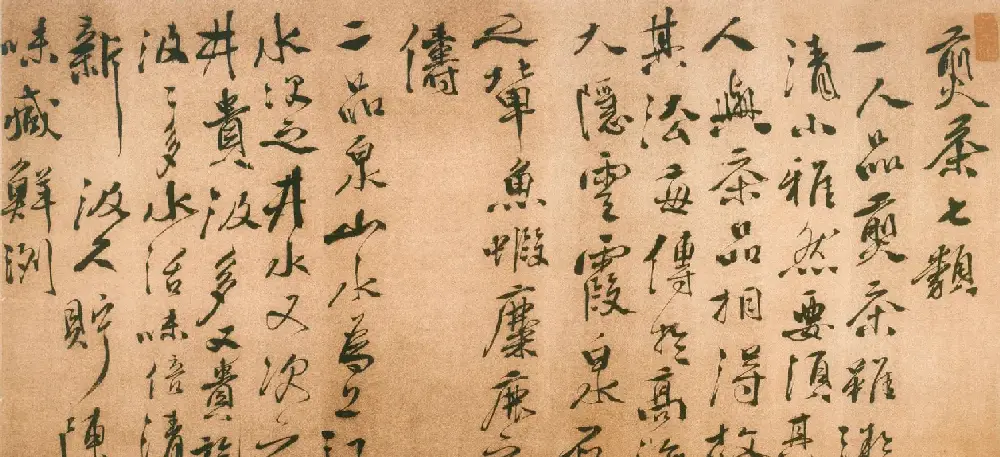 煎茶七類
一人品煎茶雖微
清小雅然要須其
人與茶品相得故
其法每傳於高流
大隱雲霞泉石
之輩魚蝦麋鹿之
儔
二品泉山水為上江
水次之井水又次之
井貴汲多又貴旋
汲〻多水活味倍清
新汲久貯陳
味減鮮洌